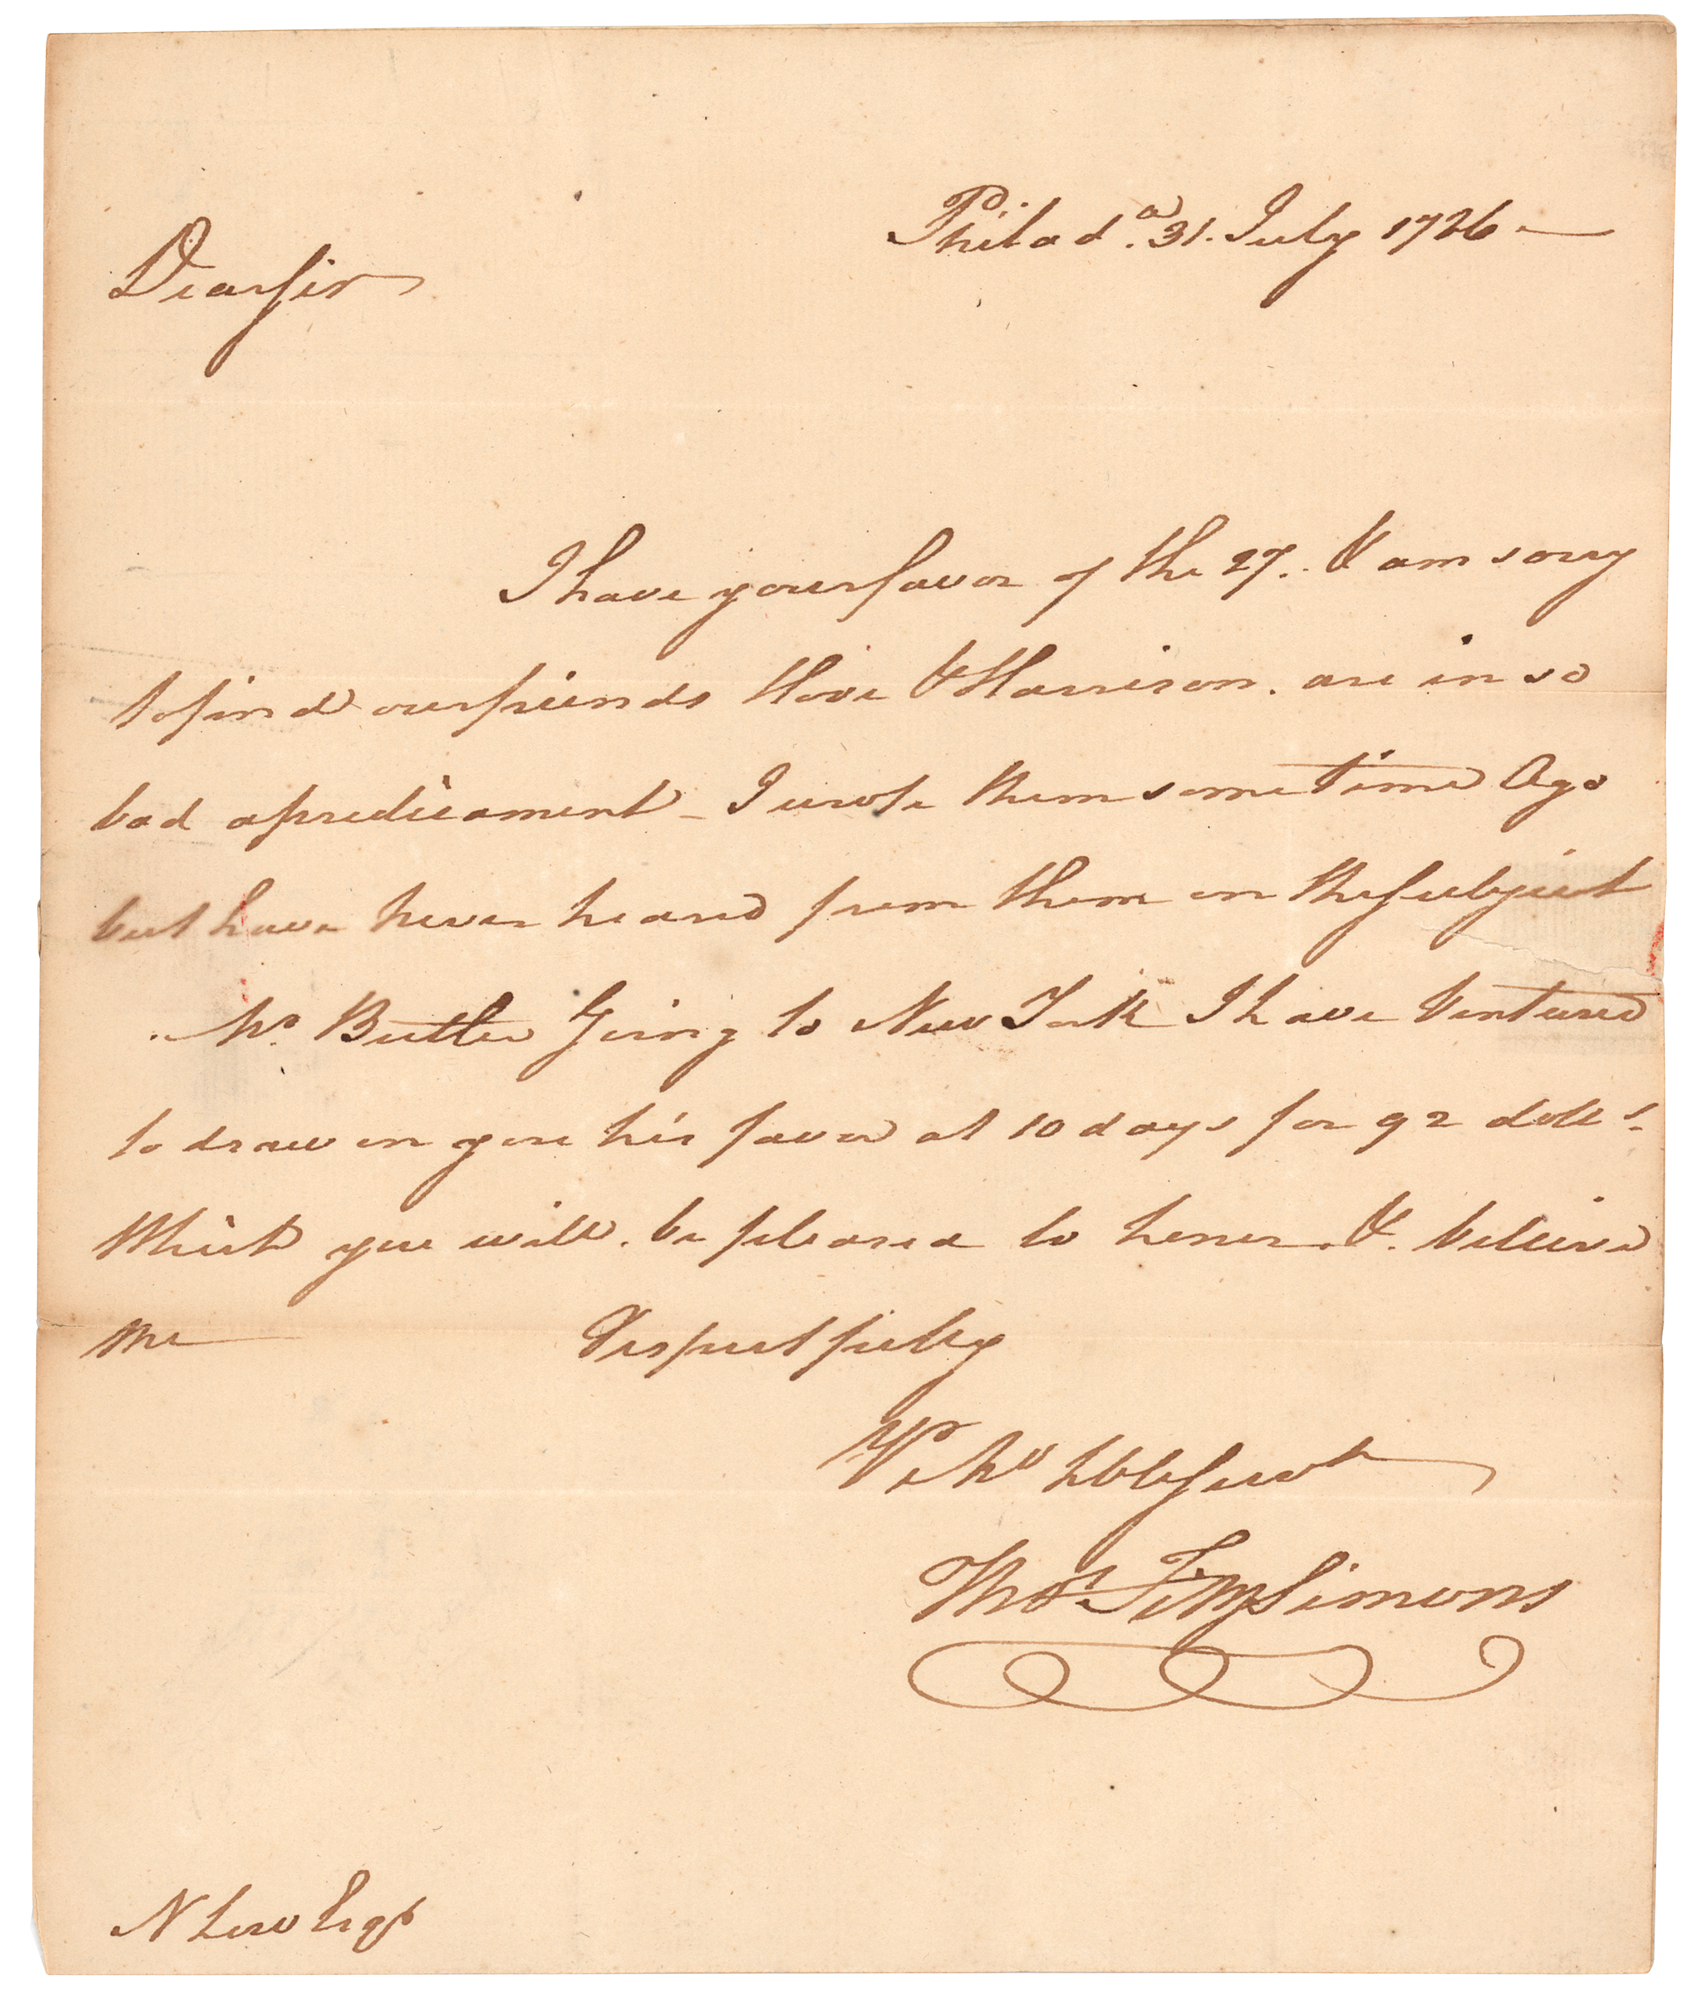 Philad.a 31. July 1786 —
Dear sir
I have your favor of the 27. & am sorry
to find our friends & Harrison. are in so
bad a predicament – I wrote them sometime Ago
but have never heard from them on the subject
Mr. Butler Going to New York I have Ventured
to draw on you his favor at 10 days for 92 dolls.
Which you will. be pleased to honor. &. believe
me — Respectfully
Yr hble servt
Thos. FitzSimons
N Low Esqr